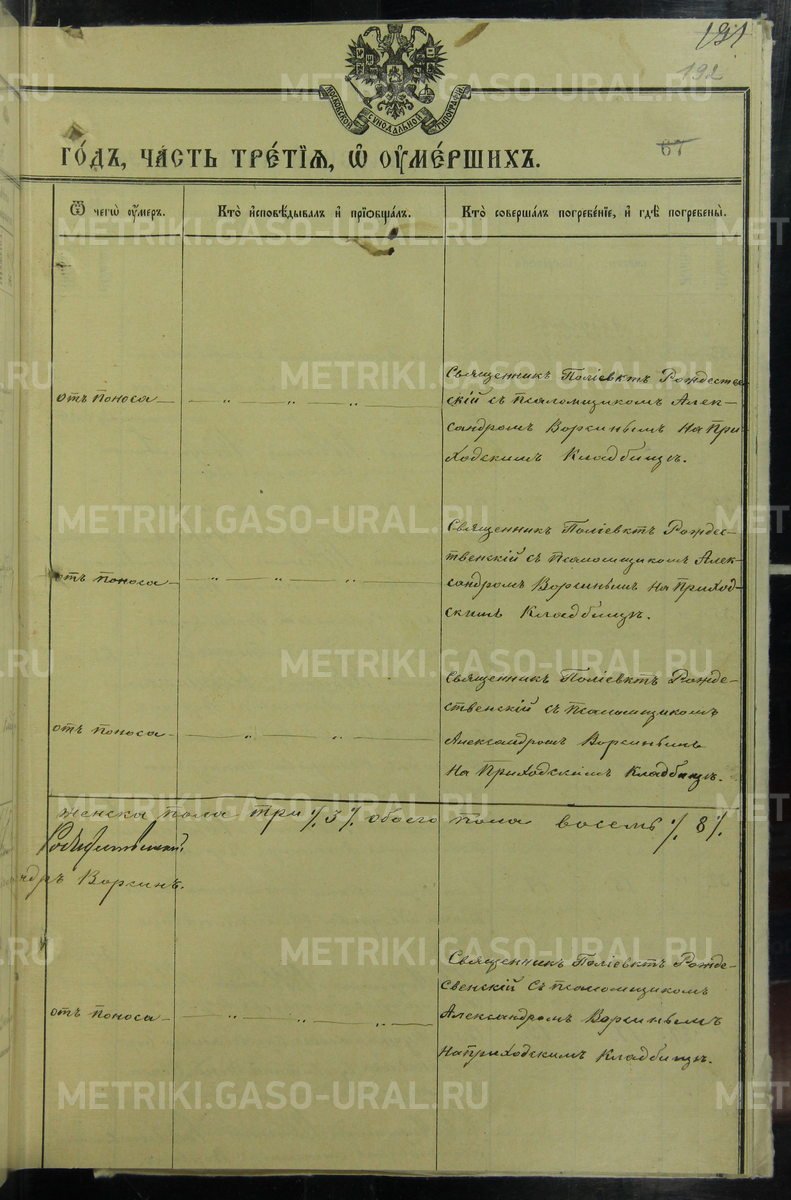 191
192
МОСКОВСКОЙ СѴНОДАЛЬНОЙ ТИПОГРАФІИ
67
го́дъ, ча́сть тре́тїѧ, ѡ҆ ᲂу҆ме́ршихъ.
Ѿ чегѡ̀ ᲂу҆́меръ.
Кто̀ и҆сповѣ́дывалъ и҆ прїѡбща́лъ.
Кто̀ соверша́лъ погребе́нїе, и҆ гдѣ̀ погребены̀.
отъ поноса — „ — „ — „ —
Священникъ Поліевктъ Рождестве-
скій съ псаломщикомъ Алек-
сандромъ Воргинымъ на При-
ходскимъ Кладбищъ.
отъ поноса — „ — „ — „ —
Священникъ Поліевктъ Рождес-
твенскій съ псаломщикомъ Алек-
сандромъ Воргинымъ на Приход-
скимъ Кладбищъ.
отъ поноса — „ — „ —
Священникъ Поліевктъ Рожде-
ственскій съ псаломщикомъ
Александромъ Воргинымъ
на Приходскимъ Кладбищъ.
женска пола три ٪ 3 ٪ обоего пола восемь ٪ 8 ٪
ндръ Воргинъ.
отъ поноса — „ — „ — „ —
Священникъ Поліевктъ Рожде-
свенскій съ псаломщикомъ
Александромъ Воргинымъ
на приходскимъ Кладбищъ.
METRIKI.GASO-URAL.RU